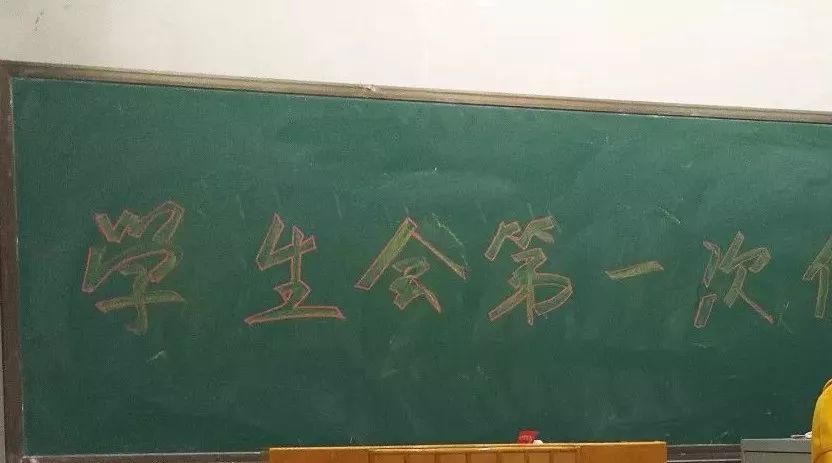 学生会第一次